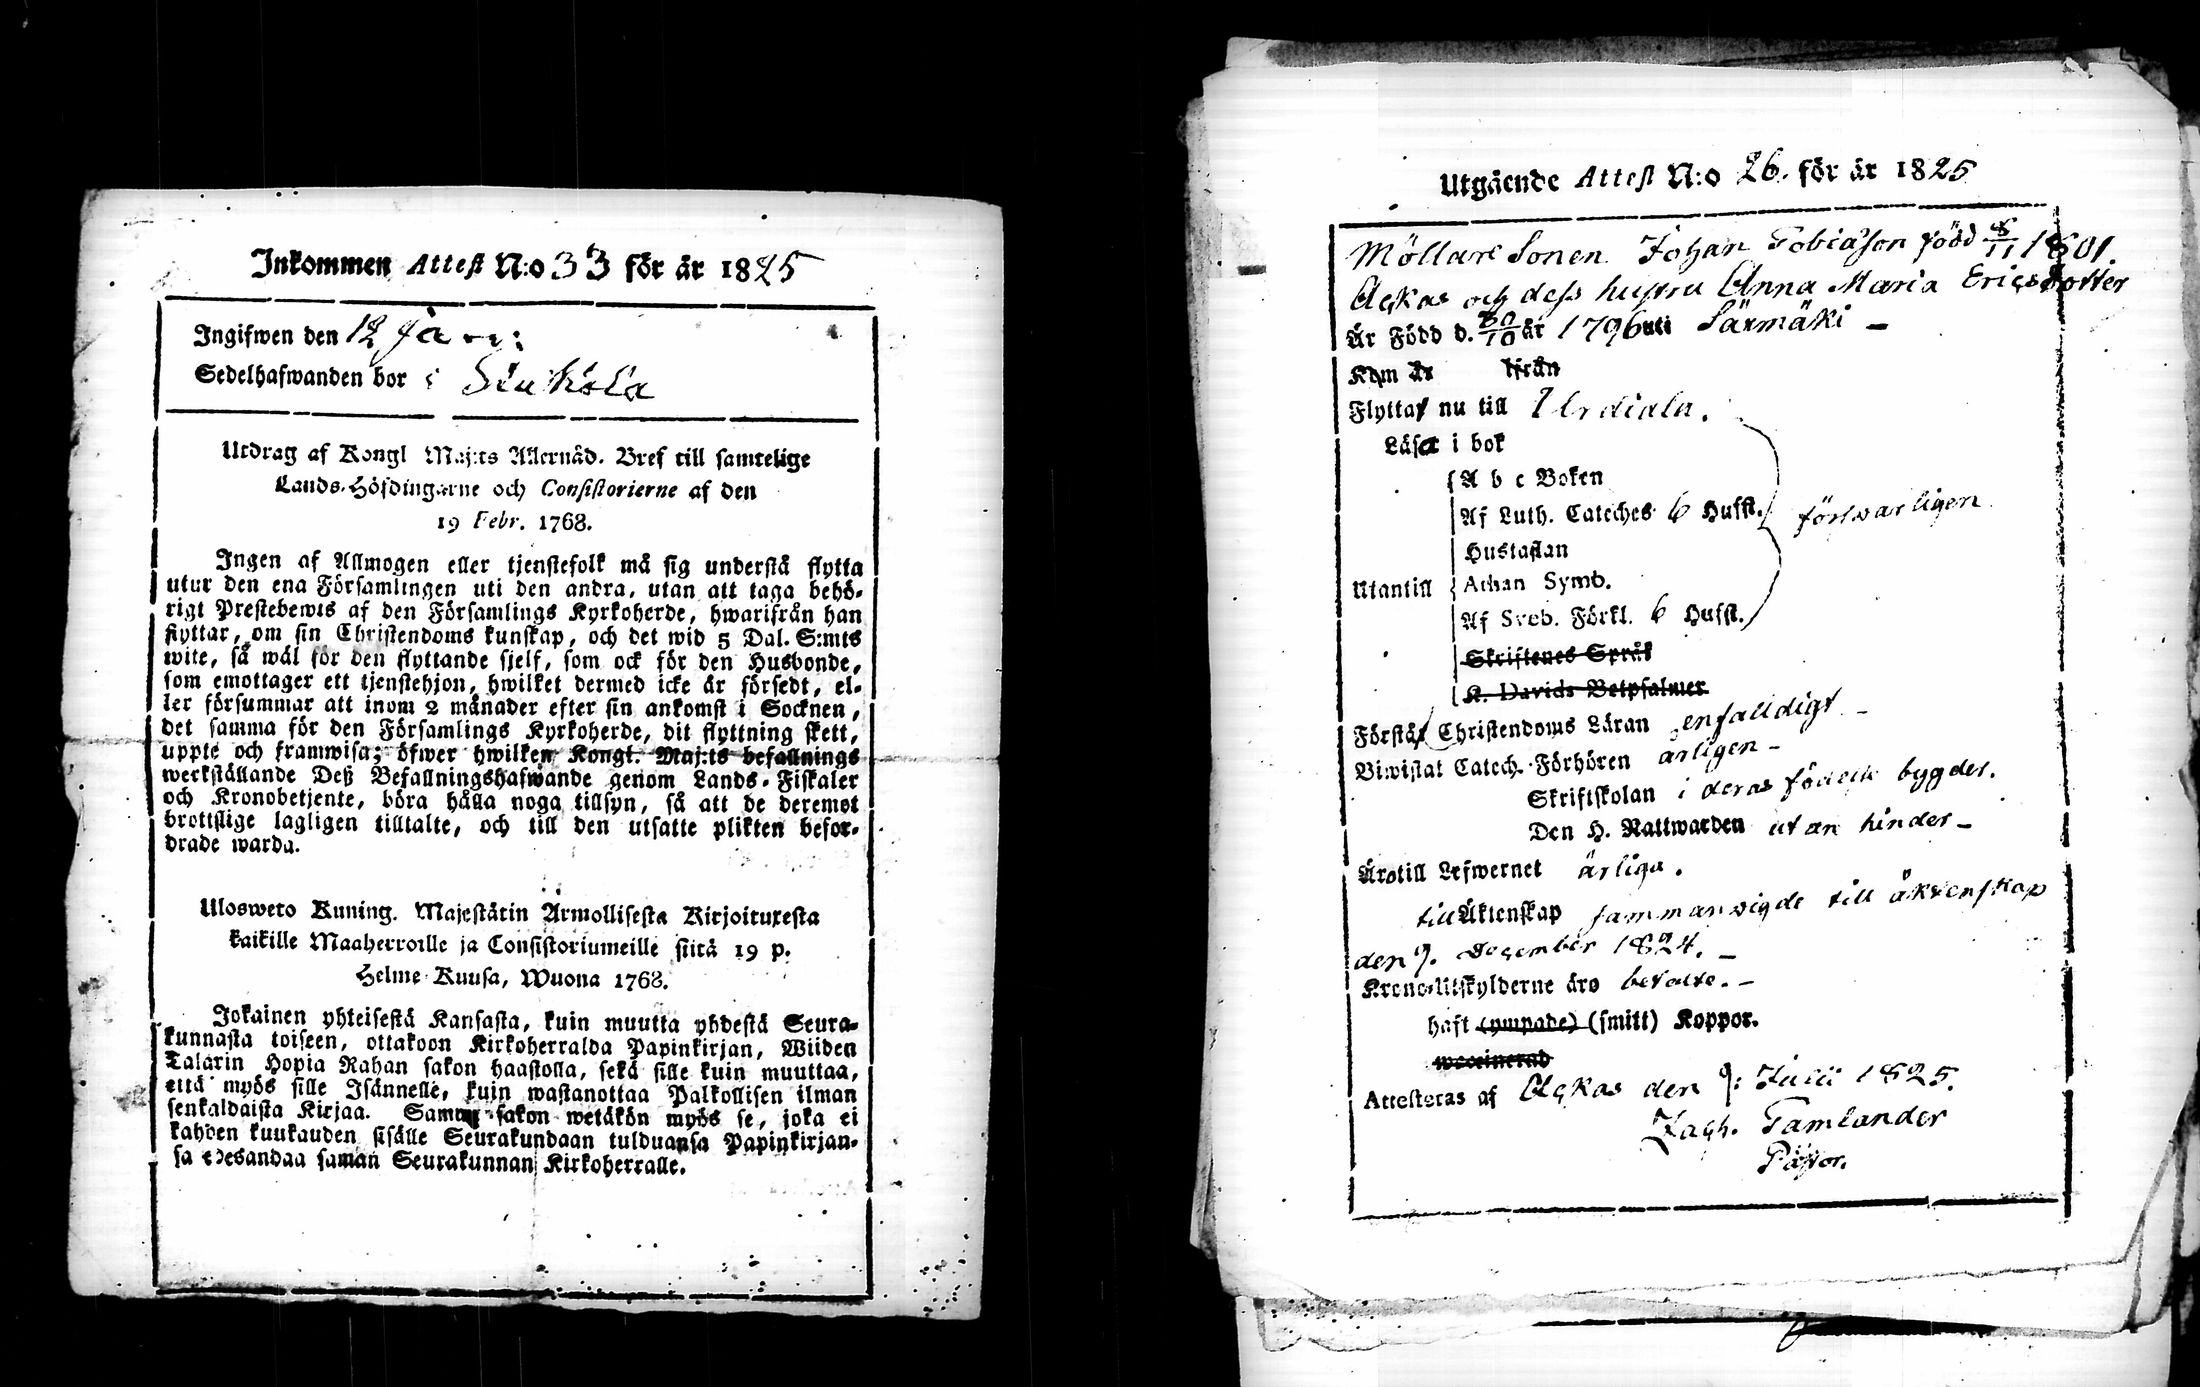 Inkommen Attest N:o 33 för år 1825
Ingifwen den 12 Jan:
Sedelhafwanden bor i
Utdrag af Kongl Maj:ts Allernåd. Bref till samtelige
Lands-Höfdingarne och Consistorierne af den
19 Febr. 1768.
Ingen af Allmogen eller tjenstefolk må sig understå flytta
utur den ena Församlingen uti den andra, utan att taga behö-
rigt Prestebewis af den Församlings Kyrkoherde, hwarifrån han
flyttar, om sin Christendoms kunskap, och det wid 5 Dal. S:mts
wite, så wäl för den flyttande sjelf, som ock för den Husbonde,
som emottager ett tjenstehjon, hwilket dermed icke är försedt, el-
ler försummar att inom 2 månader efter sin ankomst i Socknen,
det samma för den Församlings Kyrkoherde, dit flyttning skett,
uppte och framwisa; öfwer hwilken Kongl. Maj:ts befallnings
werkställande Deß Befallningshafwande genom Lands-Fiskaler
och Kronobetjente, böra hålla noga tillsyn, så att de deremot
brottslige lagligen tilltalte, och till den utsatte plikten befor-
drade warda.
Ulosweto Kuning. Majestätin Armollisesta Kirjoituxesta
kaikille Maaherroille ja Consistoriumeille siitä 19 p.
Helme-Kuusa, Wuona 1768.
Jokainen yhteisestä Kansasta, kuin muutta yhdestä Seura-
kunnasta toiseen, ottakoon Kirkoherralda Papinkirjan, Wiiden
Talarin Hopia Rahan sakon haastolla, sekä sille kuin muuttaa,
että myös sille Isännelle, kuin wastanottaa Palkollisen ilman
senkaldaista Kirjaa. Samm sakon wetäkön myös se, joka ei
kahden kuukauden sisälle Seurakundaan tulduansa Papinkirjan-
sa edesandaa saman Seurakunnan Kirkoherralle.
Utgående Attest N:o 26. för år 1825
Möllare Sonen Johan Tobiasson född 8/11 1801.
Ackas och dess hustru Anna Maria Ericsdotter
Är Född d. 30/10 år 1796 uti Särmäki –
Kom år ifrån
Flytta nu till Urdiala.
Läsa i bok
A b c Boken
Af Luth. Cateches 6 Hufst.
förswarligen
Hustaflan
Utantill
Athan Symb.
Af Sveb. Förkl. 6 Hufst.
Skriftenes Språk
K. Davids Betpsalmer
Förstå Christendoms Läran enfalldigt –
Biwistat Catech. Förhören årligen –
Skriftskolan i deras födelse bygder.
Den H. Nattwarden utan hinder –
Äro till Lefwernet ärliga.
till Äktenskap sammanwigde till äktenskap
den 9. December 1824. –
Krono-Utskylderne äro betalte. –
haft (ympade) (smitt) Koppor.
waccinerad
Attesteras af Ackas den 9: Julii 1825.
Zach. Tamlander
Pastor.